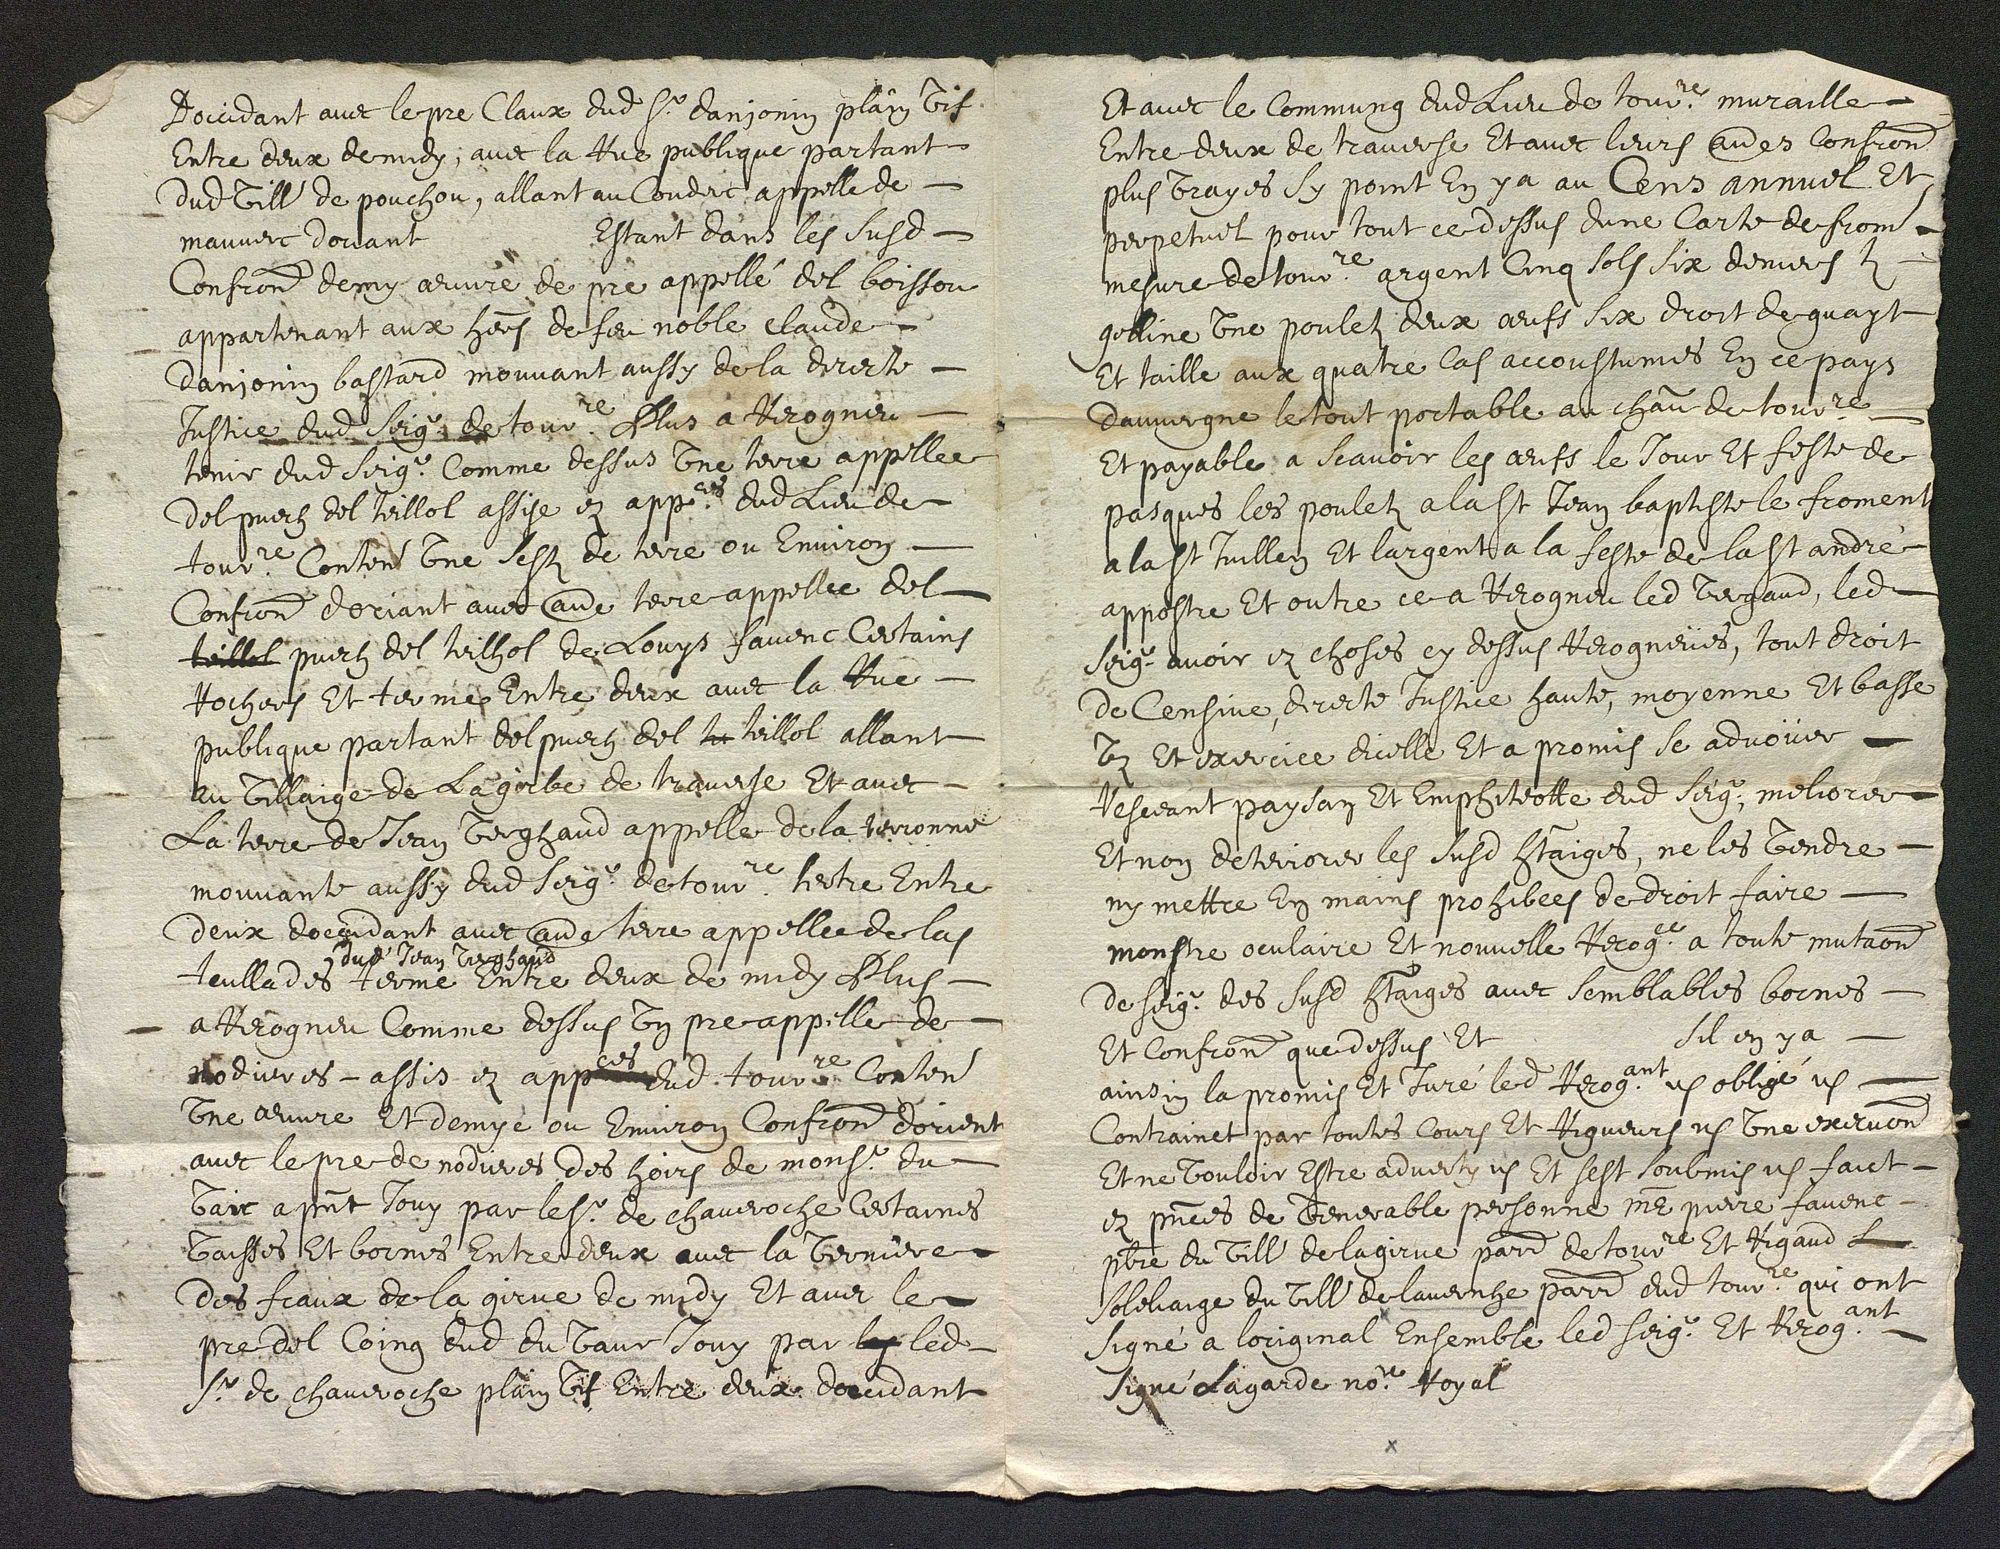 Doccidant avec le pre Claux dud Sr. danjonin plain vif
Entre deux de midy, avec la Rue publique partant
dud vill' de pouchou, allant au Coudert appellé de
mauvert doriant Estant dans les susd
Confron demy œuvre de pre appellé del boissou
appartenant aux hers de feu noble claude
danjonin bastard mouvant aussy de la directe
Justice dud Seigr. de tourre. Plus a Recogneu
tenir dud Seigr. Comme dessus une terre appellee
del puech del teillol assise ez appces. dud Lieu de
tourre. Conten une sest de terre ou Environ
Confron doriant avec aude terre appellee del
teillol puech del teilhol de Louys favenc Certains
Rochers Et terme Entre deux avec la Rue
publique partant del puech del te teillol allant
au villaige de Lagirbe de traverse Et avec
La terre de Jean verghaud appellé de la terronne
mouvante aussy dud Seigr. de tourre. tertre Entre
deux doccidant avec aude terre appellee de las
dud Jean verghaud
teullades terme Entre deux de midy Plus
a Recogneu Comme dessus un pre appellé de
nodieres - assis ez appces dud. tourre. Conten
une œuvre Et demye ou Environ Confron dorient
avec le pre de nodieres des hoirs de monsr. du
vair a pnt Jouy par le Sr. de chaveroche Certaines
vaisses Et bornes Entre deux avec la verniere
des feaux de la girve de midy Et avec le
pre del Coing dud du vaur Jouy par les led
Sr. de chaveroche plain vif Entre deux doccidant
Et avec le Commung dud Lieu de tourre. muraille
Entre deux de traverse Et avec leurs audes Confron
plus vrayes sy point En y a au Cens annuel Et
perpetuel pour tout ce dessus dune Carte de from
mesure de tourre. argent Cinq sols six deniers t
gelline une poulet deux œufs six droit de guayt
Et taille aux quatre cas accoustumes En ce pays
dauvergne le tout portable au chau de tourre
Et payable a scavoir les œufs le Jour Et feste de
pasques les poulet a la St Jean baptiste le froment
a la St Juillen Et largent a la feste de la St andré
appostre Et outre ce a Recogneu led vergaud, led
Seigr. avoir ez choses cy dessus Recogneües, tout droit
de Censive, directe Justice haute, moyenne Et basse
uz Et exercice dicelle Et a promis se advoüer
Reseant paysan Et Emphiteotte dud Seigr., meliorer
Et non deteriorer les susd htaiges, ne les vendre
ny mettre En mains prohibees de droit faire
monstre oculaire Et nouvelle Recogce a toute mutaon
de Seigr. des susd htaiges avec semblables bornes
Et Confron que dessus Et sil en y a
ainsin la promis Et Juré led Recogant us obligé us
Contrainct par toutes Cours Et Rigueurs us une
Et ne vouloir Estre adverty us Et sest soubmis us faict
ez pnces de venerable personne me pierre favenc
pbre du vill' de lagirve parr de tourre Et Rigaud
soleliaige du vill' de lavernhe parr dud tourre. qui ont
signé a loriginal Ensemble led Seigr. Et Recogant
signé Lagarde nore. Royal